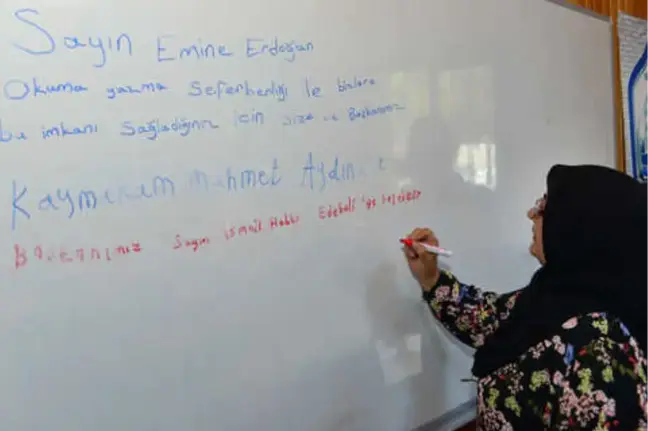 Sayın Emine Erdoğan
Okuma yazma Seferberliği le bizlere
bu imkanı Sağladığınız için size ve Başkanımız
Kaymakam mahmet Aydın
Sayın ismail Hakkı Edebali